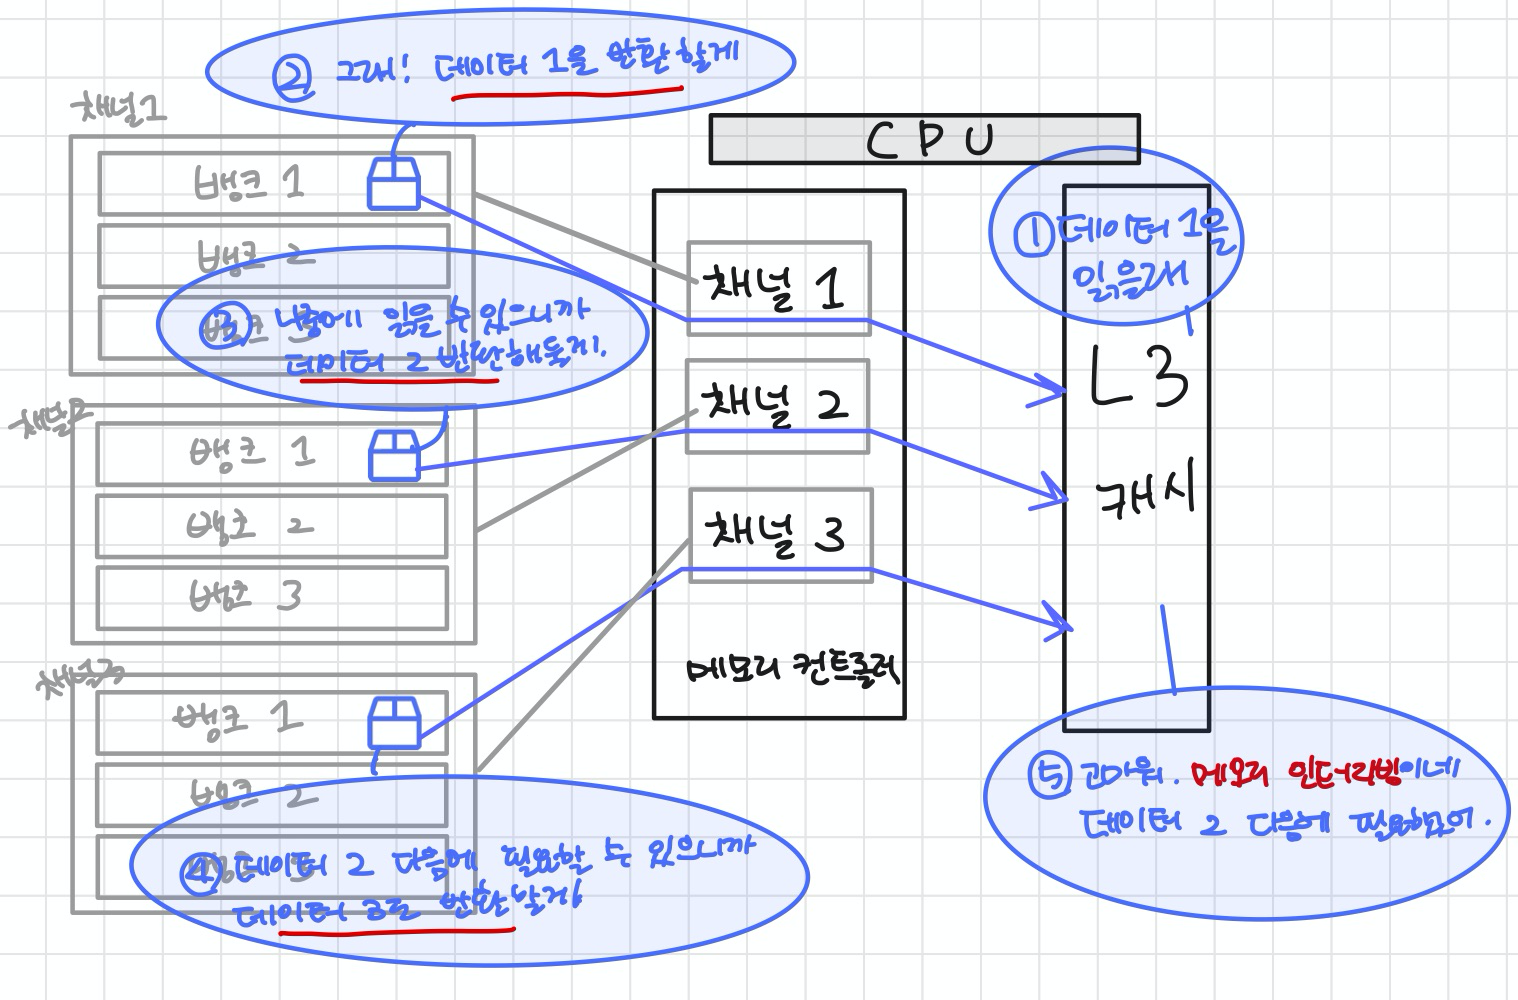 ② 그래! 데이터 1을 반환할게
채널1
뱅크 1
뱅크 2
③ 나중에 읽을 수 있으니까
데이터 2 반환해둘게.
채널2
뱅크 1
뱅크 2
뱅크 3
채널3
뱅크 1
뱅크 2
④ 데이터 2 다음에 필요할 수 있으니까
데이터 3로 반환할게
CPU
채널 1
채널 2
채널 3
메모리 컨트롤러
① 데이터 1을
읽을래
L3
캐시
⑤ 고마워. 메모리 인터리빙이네
데이터 2 다음에 필요했어.